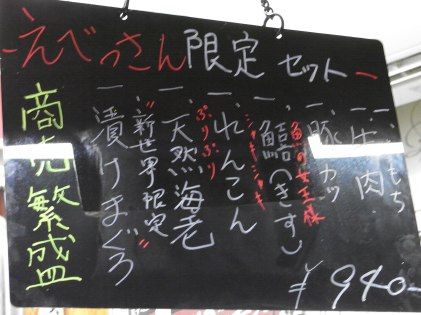 -えべっさん限定セット-
一、もち
一、牛肉
一、豚カツ
魚の女王様
一、鱚(きす)
シャキシャキ
一、れんこん
ぷりぷり
一、天然海老
"新世界限定"
一、漬けまぐろ
商売繁盛
¥940-